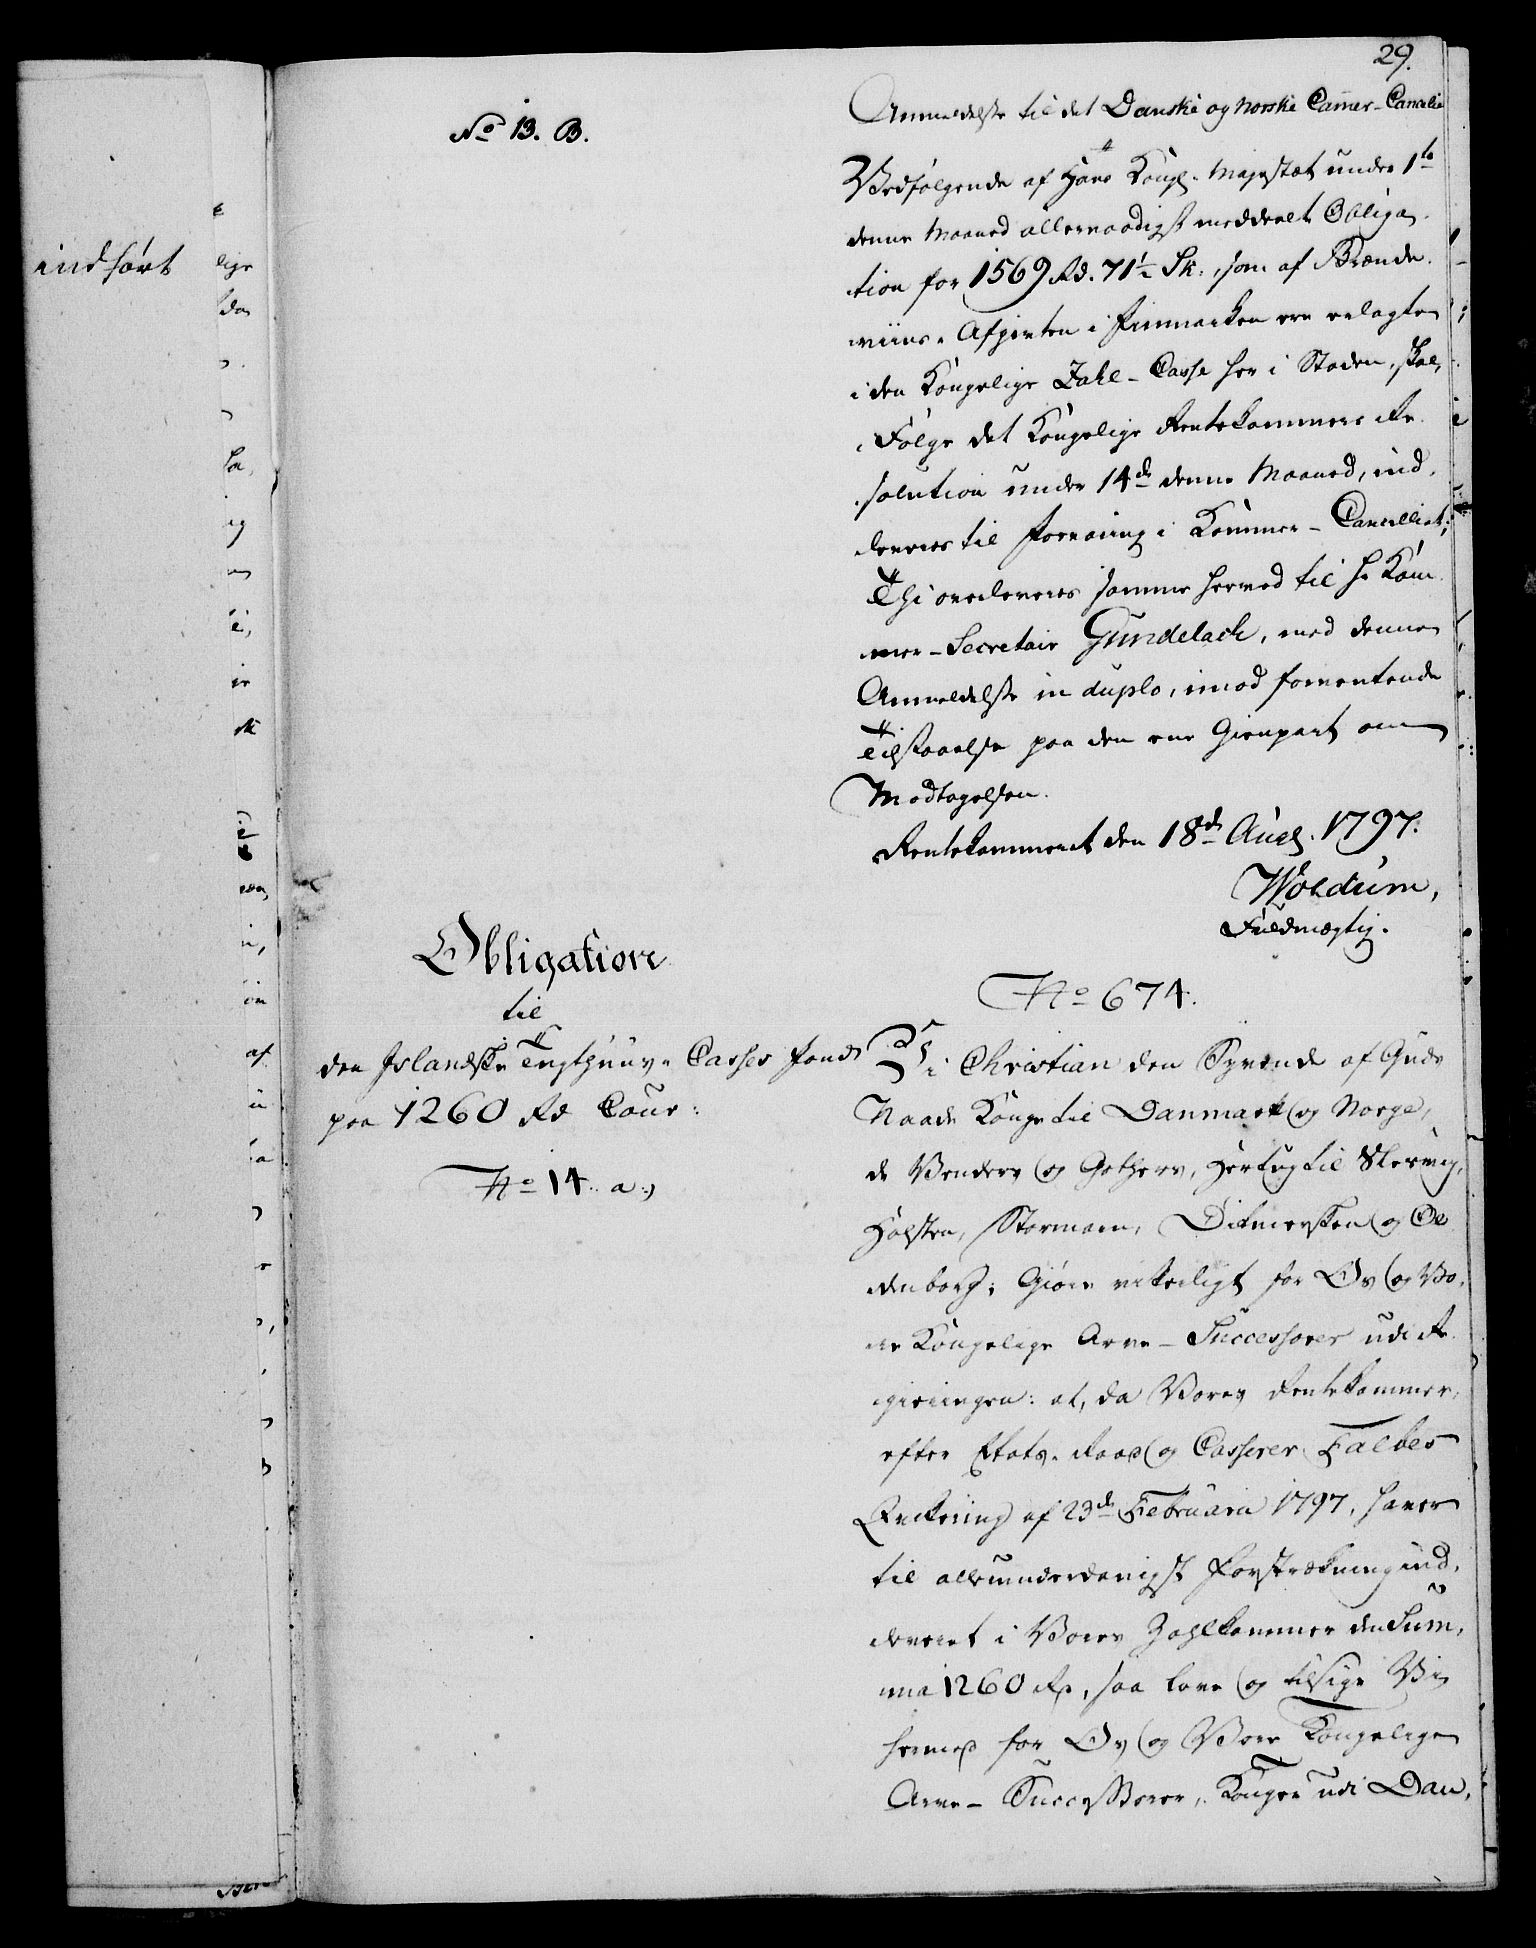 29.
No 13. B.
Anmeldelse til det Danske og Norske Camer-Cancelie
Vedfølgende af Hans Kongl. Majestæt under 1te
denne Maaned allernaadigst meddeelt Obliga-
tion for 1569 Rd. 71½ Sk., som af Brænde-
viins-Afgivten i Finmarken ere erlagte
i den Kongelige Zahl-Casse her i Staden, skal,
Følge det Kongelige Rentekammers Re-
solution under 14de denne Maaned, ind-
leveres til forvaring i Kammer-Cancelliet;
Thi overleveres samme hermed til Hr Kam-
mer-Secretair Gundelach, med denne
Anmeldelse in duplo, imod forventende
Tilstaaelse paa den ene Gienpart om
Modtagelsen.
Rentekammeret den 18de Aug. 1797.
Woldum,
Fuldmægtig.
indført
Obligation
til
den Islandske Tugthuus-Casses fond
paa 1260 Rd Cour:
No 14. a.)
No 674.
Vi Christian den Syvende af Guds
Naade Konge til Danmark og Norge,
de Venders og Gothers, Hertug til Slesvig,
Holsten, Stormarn, Ditmersken og Ol-
denborg; Giøre vitterligt for Os og Vo-
re Kongelige Arve-Successorer udi Re-
gieringen: at, da Vores Rentekammer,
efter Etats-Raad og Casserer Falbes
Qvitering af 23de Februarii 1797, haver
til allerunderdanigst Forstrækning ind-
leveret i Vores Zahlkammer den Sum-
ma 1260 Rd, saa love og tilsige Vi
hermed for Os og Vore Kongelige
Arve-Successorer, Konger udi Dan-